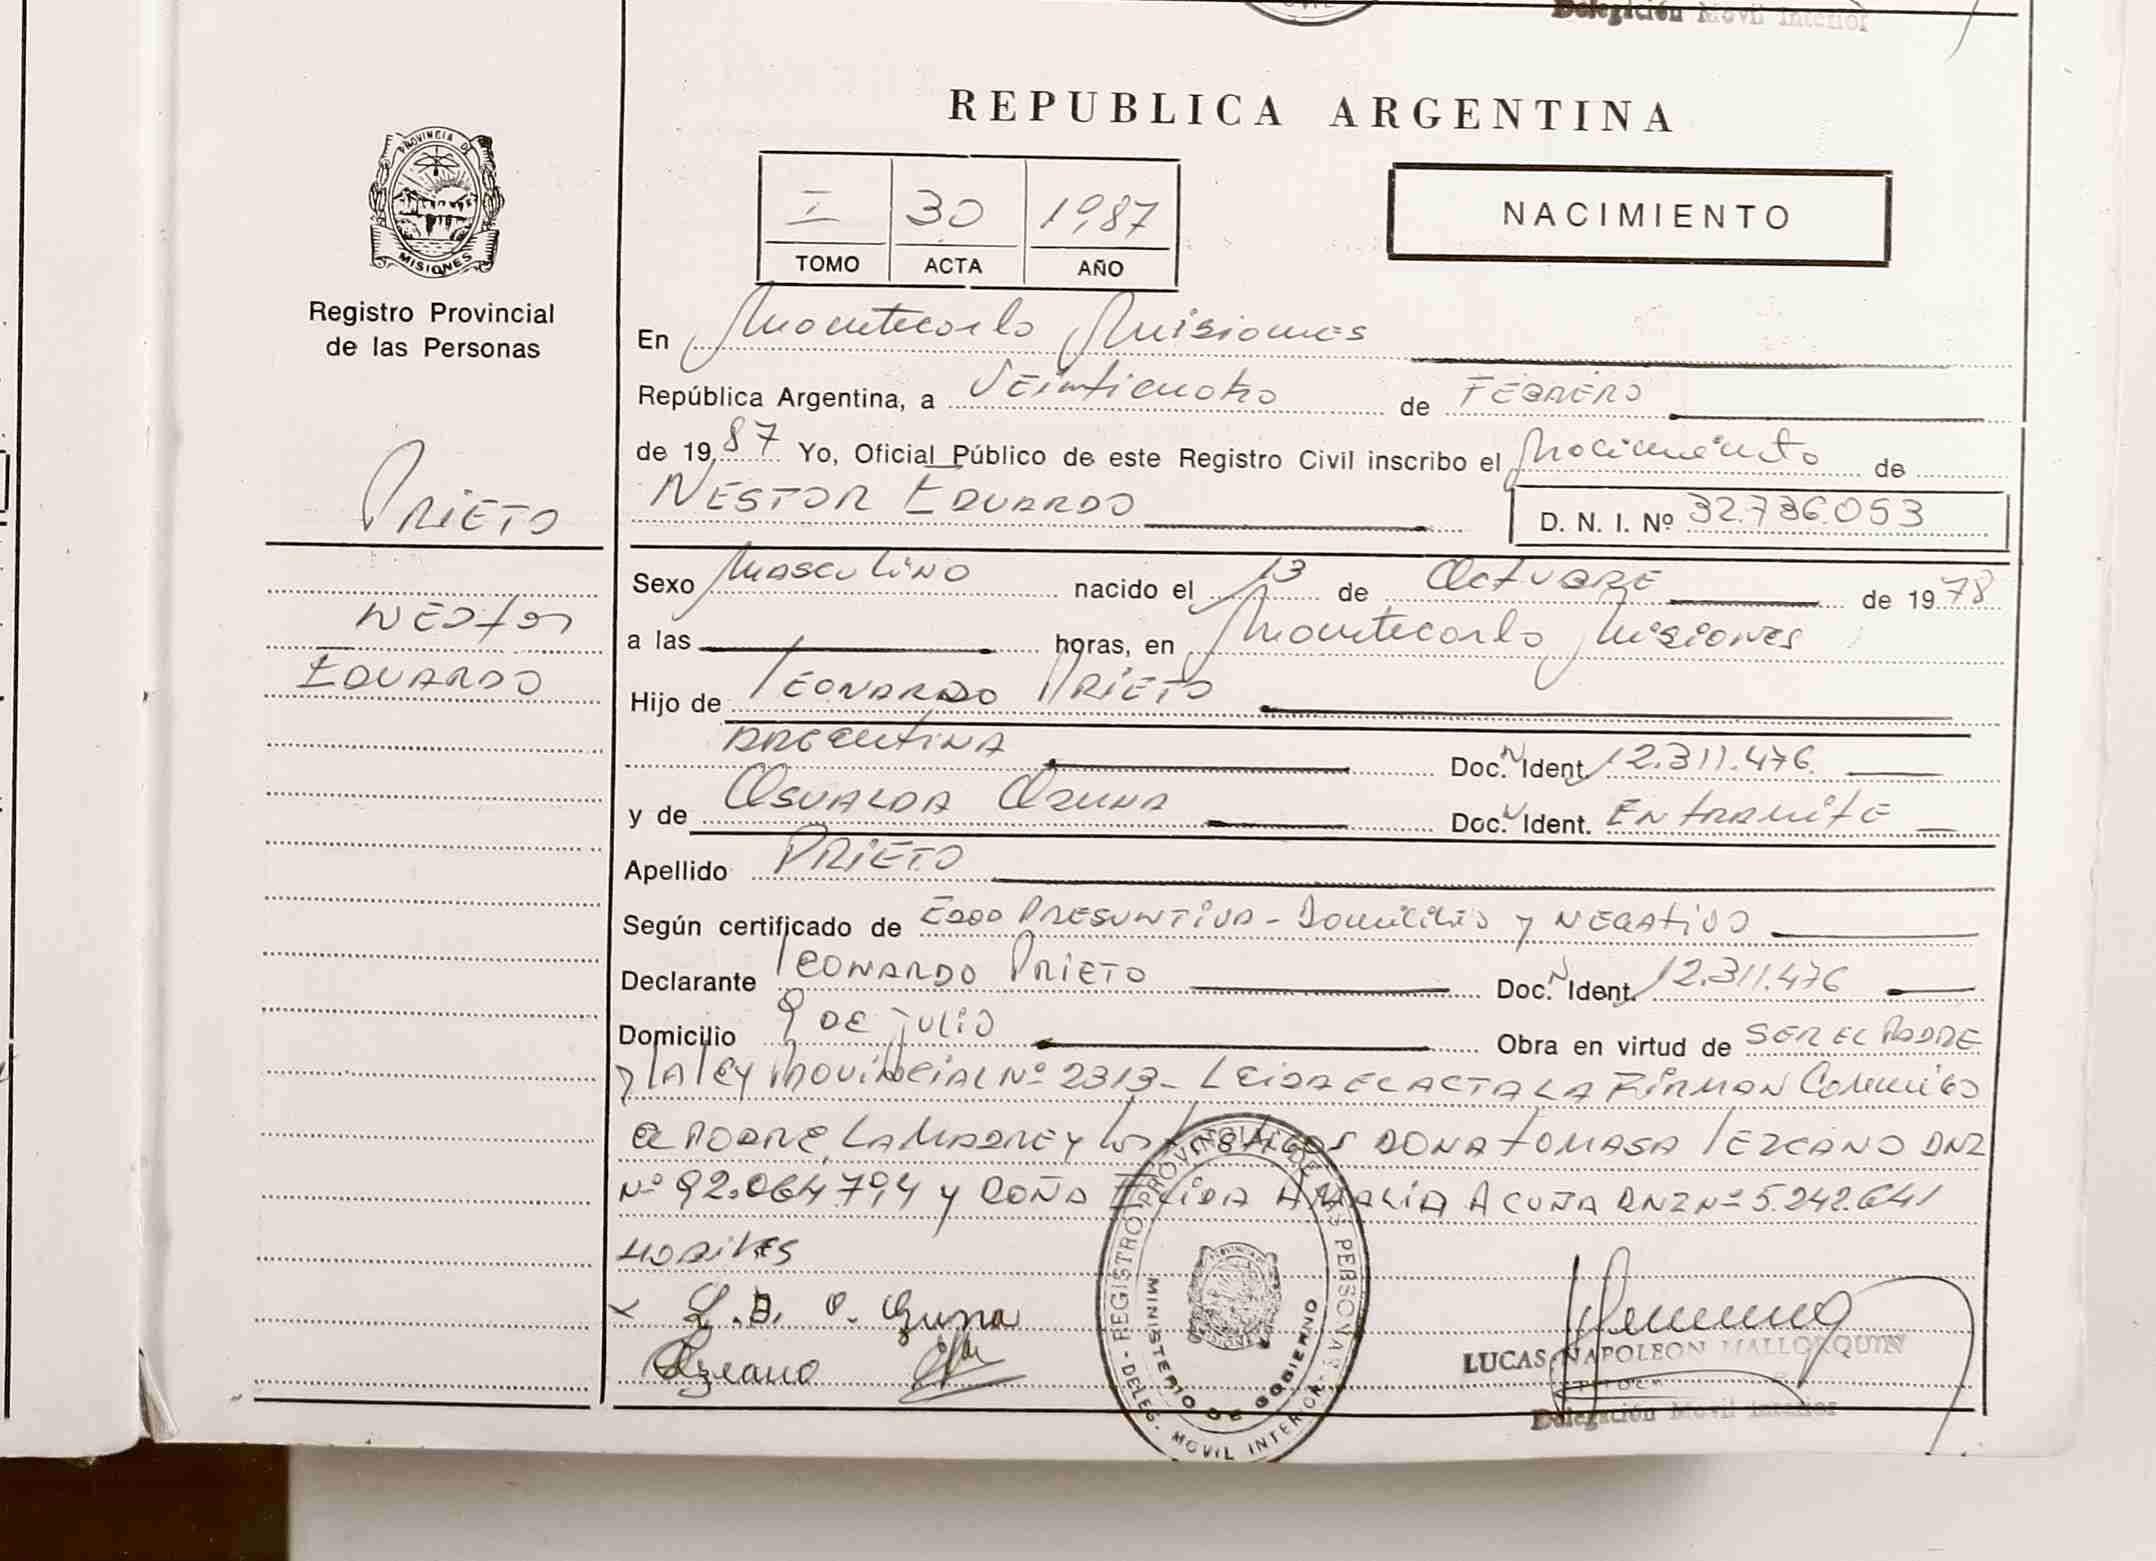 Delegación Movil Interior
REPUBLICA ARGENTINA
PROVINCIA DE
MISIONES
Registro Provincial
de las Personas
I 30 1987
TOMO ACTA AÑO
NACIMIENTO
En Montecarlo Misiones
República Argentina, a Veinticuatro de FEBRERO
de 1987 Yo, Oficial Público de este Registro Civil inscribo el Nacimiento de
NESTOR EDUARDO
D. N. I. Nº 32.736.053
PRIETO
NESTOR
EDUARDO
Sexo Masculino nacido el 13 de Octubre de 1978
a las horas, en Montecarlo Misiones
Hijo de LEONARDO PRIETO
ARGENTINA Doc. N Ident. 12.311.476
y de OSVALDA OZUNA Doc. N Ident. En tramite
Apellido PRIETO
Según certificado de Edad PRESUNTIVA - Domicilio y NEGATIVO
Declarante LEONARDO PRIETO Doc. N Ident. 12.311.476
Domicilio 9 DE JULIO Obra en virtud de SER EL PADRE
y LA LEY PROVINCIAL Nº 2313 - LEIDA EL ACTA LA FIRMAN Conmigo
El PADRE, LA MADRE y los testigos DOÑA TOMASA LEZCANO DNI
Nº 92.064.794 y DOÑA AMALIA ACUÑA DNI Nº 5.242.641
HABILES
REGISTRO PROVINCIAL DE LAS PERSONAS - DELEG. MOVIL INTERIOR -
MINISTERIO DE GOBIERNO
LUCAS NAPOLEON MALLORQUIN
Delegación Movil Interior